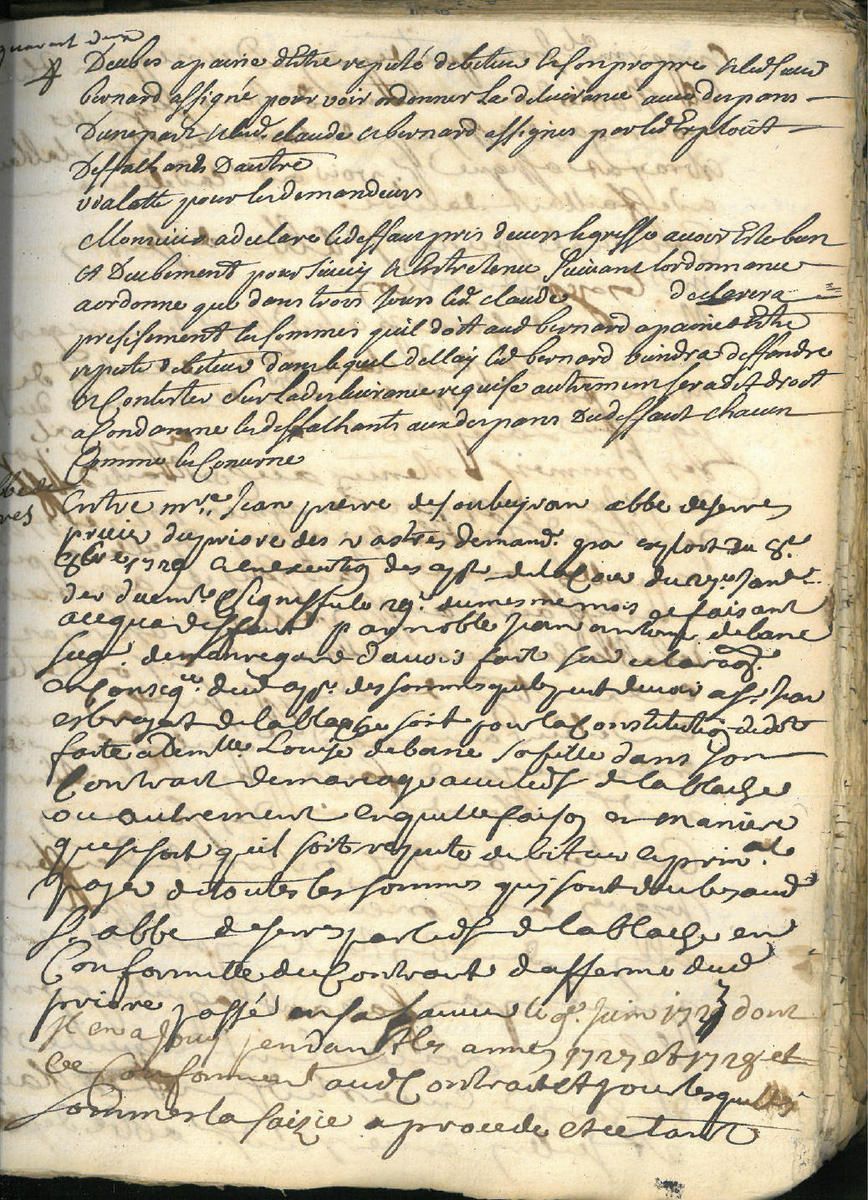 Deubes a paine d'Estre reputé debiteur le son propre & led. sieur
bernard assigné pour voir ordonner la deliurance aued despans
D'une part & led. claude & bernard assignes par led Exploit
Deffalhants D'autre
vialatte pour les demandeurs
Monsieur a declare led deffaut pris deuers le greffe auoir Este bien
Et Deubement poursuiuy & Entretenu suiuant l'ordonnance
a ordonne que dans trois Jours led. claude declarera
presisement les sommes quil doit aud bernard a paine d'Estre
repute debiteur dans lequel dellay led bernard viendra deffandre
& Contester sur lad deliurance requise autrement sera dit droit
a Condamne les deffalhants aux despans Du deffaut chacun
Comme les Conserne
Entre mre. Jean pierre de soubeyran abbe de serres
prieur du priore des vastres demandr. par exploit du 8e.
8bre 1729 & en execution des app. de la Cour du
deuemt. signiffie le 29e. du mesme mois & faisant
a ce qua deffaut par noble Jean antoine de bane
seigr. de montregard d'auoir fait sa declaraon.
en Conseqce. dud app. des sommes
de la blache soit pour la Constitution de dot
faite a Demlle. Louise de bane sa fille dans son
Contrat de mariage auec led sr de la blache
ou autrement en quelle faison et maniere
que se soit quil soit repute debiteur
paye de toutes les sommes quy sont deubes aud
sr. abbe de serres par led sr de la blache en
Conformitte du Contrat d'afferme dud
priore passé le 9e. Juin 1727 dont
Il en a Jouy pendant les annees 1727 et 1728 et
ce Conformemt. aud Contrat et pour lesquelles
sommes la saizie a procede et ce tant